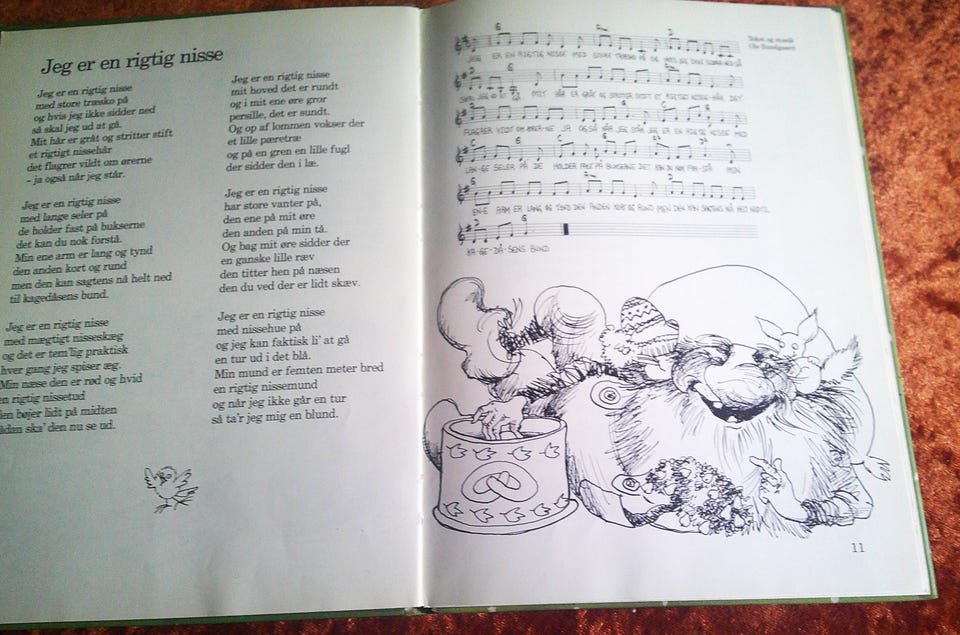 Jeg er en rigtig nisse
Jeg er en rigtig nisse
med store træsko på
og hvis jeg ikke sidder ned
så skal jeg ud at gå.
Mit hår er gråt og stritter stift
et rigtigt nissehår
det flagrer vildt om ørerne
– ja også når jeg står.
Jeg er en rigtig nisse
med lange seler på
de holder fast på bukserne
det kan du nok forstå.
Min ene arm er lang og tynd
den anden kort og rund
men den kan sagtens nå helt ned
til kagedåsens bund.
Jeg er en rigtig nisse
med mægtigt nisseskæg
og det er tem'lig praktisk
hver gang jeg spiser æg.
Min næse den er rød og hvid
en rigtig nissetud
den bøjer lidt på midten
sådan ska' den nu se ud.
Jeg er en rigtig nisse
mit hoved det er rundt
og i mit ene øre gror
persille, det er sundt.
Og op af lommen vokser der
et lille pæretræ
og på en gren en lille fugl
der sidder den i læ.
Jeg er en rigtig nisse
har store vanter på,
den ene på mit øre
den anden på min tå.
Og bag mit øre sidder der
en ganske lille ræv
den titter hen på næsen
den du ved der er lidt skæv.
Jeg er en rigtig nisse
med nissehue på
og jeg kan faktisk li' at gå
en tur ud i det blå.
Min mund er femten meter bred
en rigtig nissemund
og når jeg ikke går en tur
så ta'r jeg mig en blund.
Tekst og musik
JEG ER EN RIGTIG NISSE MED STORE TRÆSKO PÅ OG HVIS JEG IKKE SIDDER NED SÅ
SKAL JEG UD AT GÅ MIT HÅR ER GRÅT OG STRITTER STIFT ET RIGTIGT NISSE-HÅR DET
FLAGRER VILDT OM ØRER-NE JA OGSÅ NÅR JEG STÅR JEG ER EN RIGTIG NISSE MED
LAN-GE SELER PÅ DE HOLDER FAST PÅ BUKSERNE DET KAN DU NOK FOR-STÅ MIN
EN-E ARM ER LANG OG TYND DEN ANDEN KORT OG RUND MEN DEN KAN SAGTENS NÅ HELT NED TIL
KA-GE-DÅ-SENS BUND
11